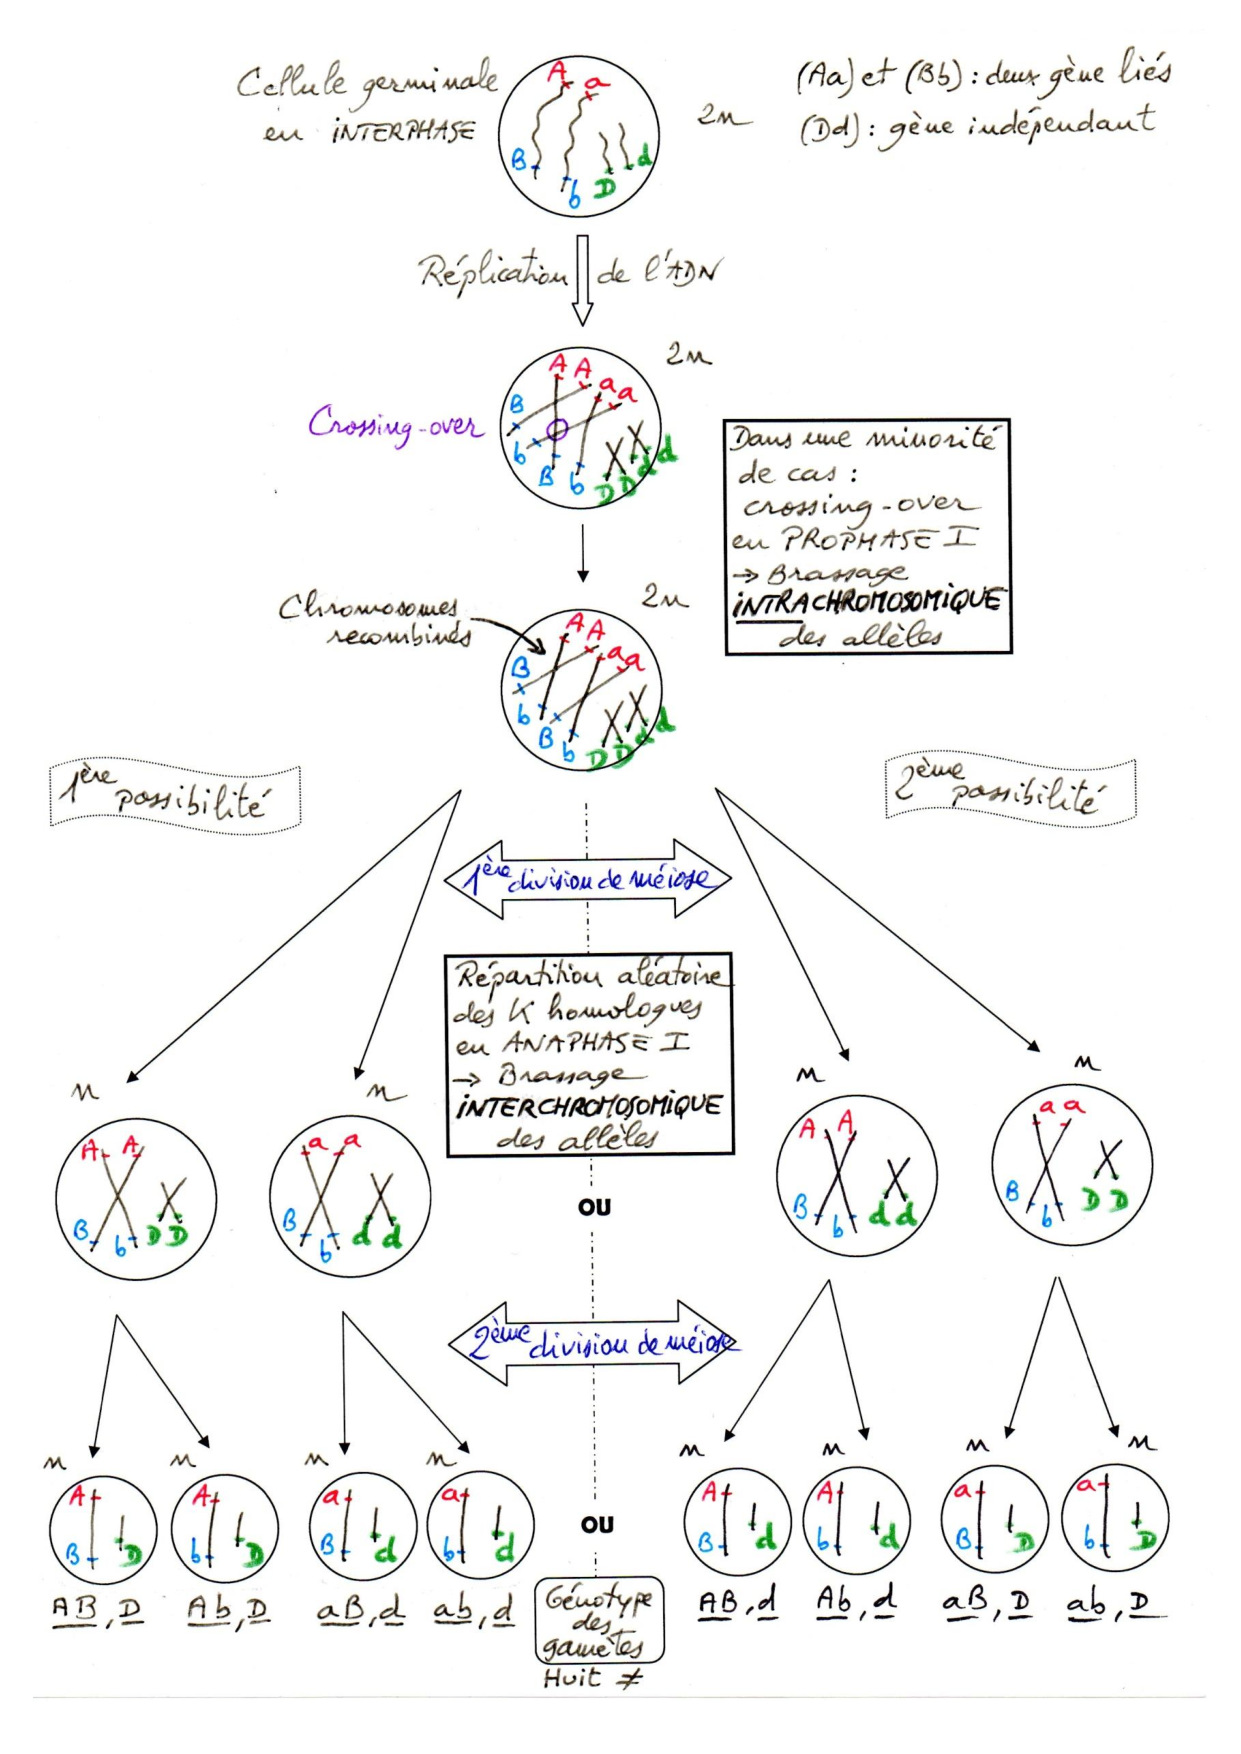 Cellule germinale
en INTERPHASE
A a
B b D d
2n
(Aa) et (Bb) : deux gène liés
(Dd) : gène indépendant
Réplication de l'ADN
2n
A A a a
B
b
B b D D d d
Crossing-over
Dans une minorité
de cas :
crossing-over
en PROPHASE I
→ Brassage
INTRACHROMOSOMIQUE
des allèles
Chromosomes
recombinés
2n
A A a a
B
b
B b D D d d
1ère possibilité
2ème possibilité
1ère division de méiose
Répartition aléatoire
des K homologues
en ANAPHASE I
→ Brassage
INTERCHROMOSOMIQUE
des allèles
n
A A
B b D D
n
a a
B b d d
OU
n
A A
B b d d
n
a a
B b D D
2ème division de méiose
n
A
B D
n
A
b D
n
a
B d
n
a
b d
OU
n
A
B d
n
A
b d
n
a
B D
n
a
b D
AB, D
Ab, D
aB, d
ab, d
AB, d
Ab, d
aB, D
ab, D
Génotype
des
gamètes
Huit ≠